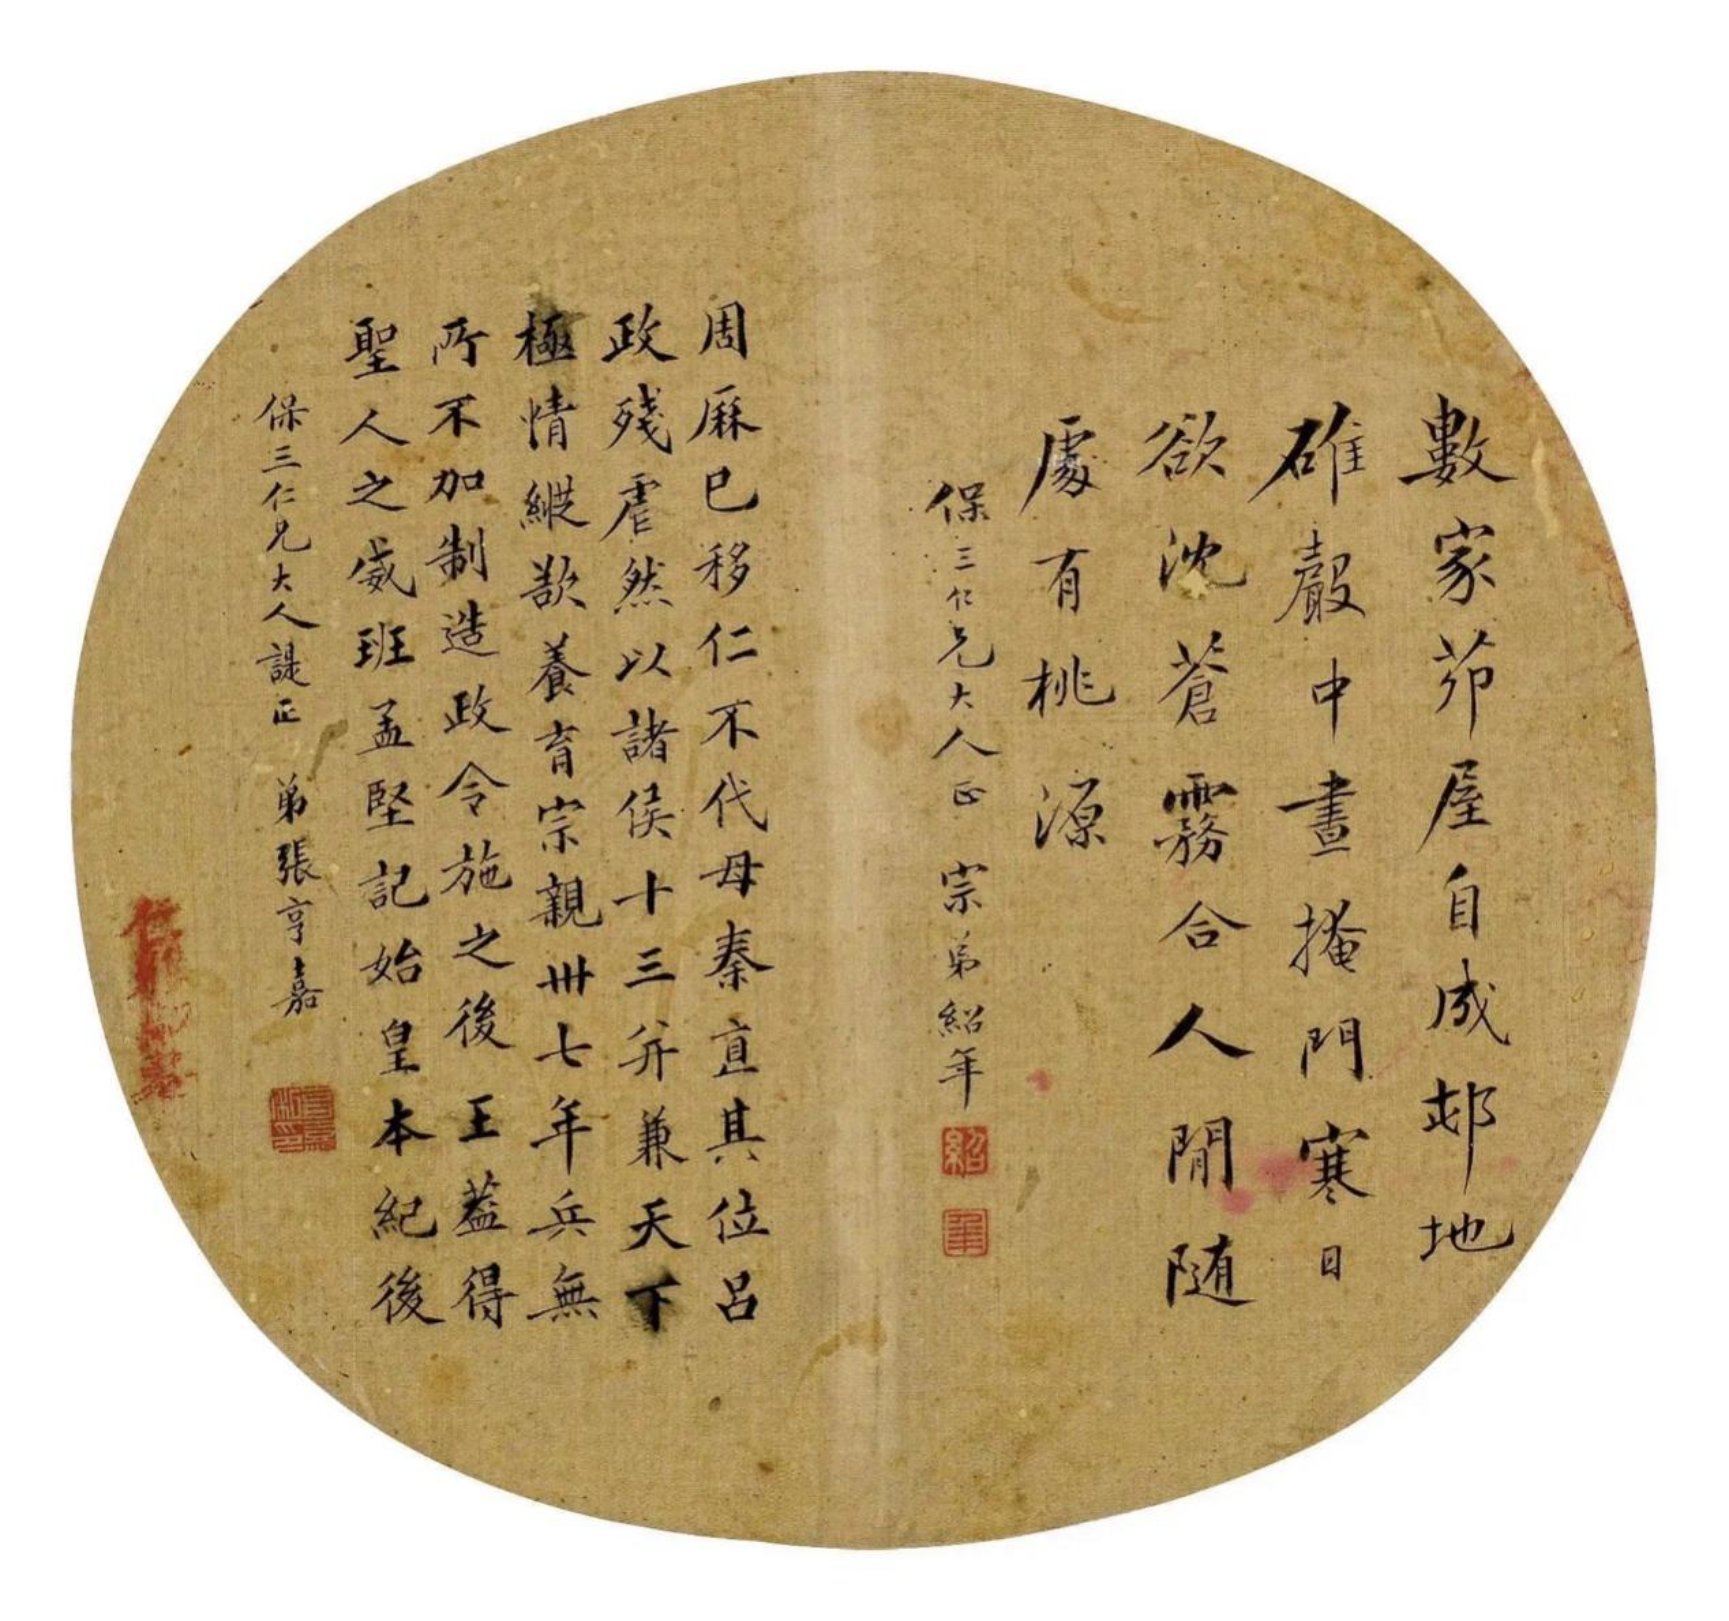 數家茆屋自成邨地
碓聲中晝掩門寒日
欲沈蒼霧合人閒随
處有桃源
保三仁兄大人正 宗弟紹年
紹
年
周厤已移仁不代母秦直其位呂
政殘虐然以諸侯十三并兼天下
極情縱欲養育宗親卅七年兵無
所不加制造政令施之後王葢得
聖人之威班孟堅記始皇本紀後
保三仁兄大人諟正 弟張亨嘉